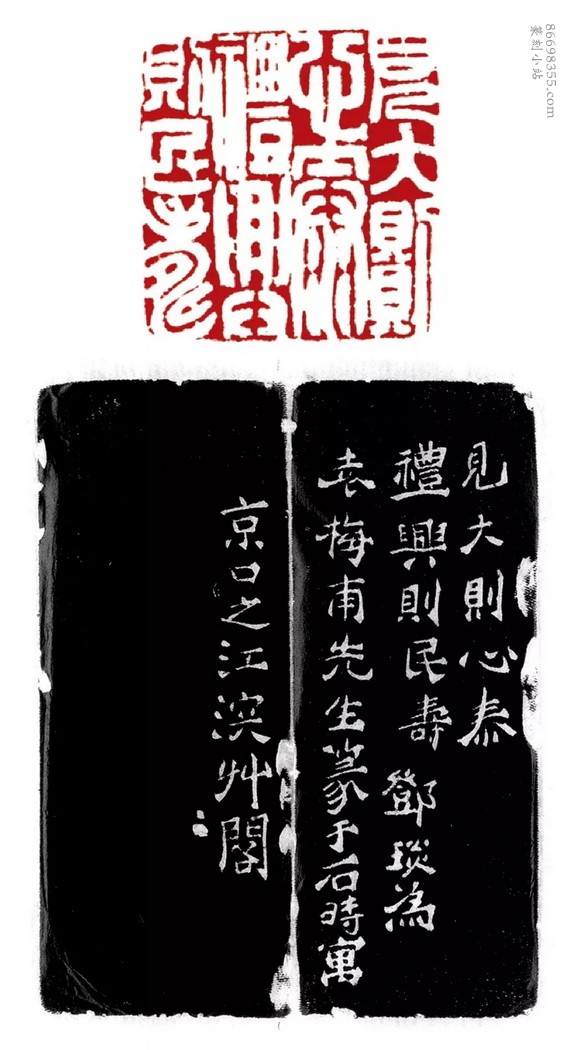 86698355.com
篆刻小站
見大則
心泰
禮興
則民壽
見大則心泰
禮興則民壽 鄧琰為
袁梅甫先生篆于石時寓
京口之江濱艸閣